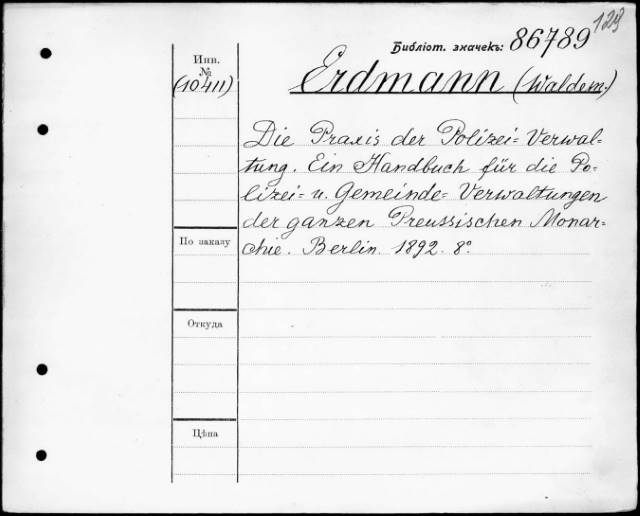 123
Библіот. значекъ: 86789
Инв.
№
(10411)
Erdmann (Waldem.)
Die Praxis der Polizei= Verwal=
tung. Ein Handbuch für die Po=
lizei= u. Gemeinde= Verwaltungen
der ganzen Preussischen Monar=
chie. Berlin. 1892. 8°.
По заказу
Откуда
Цѣна